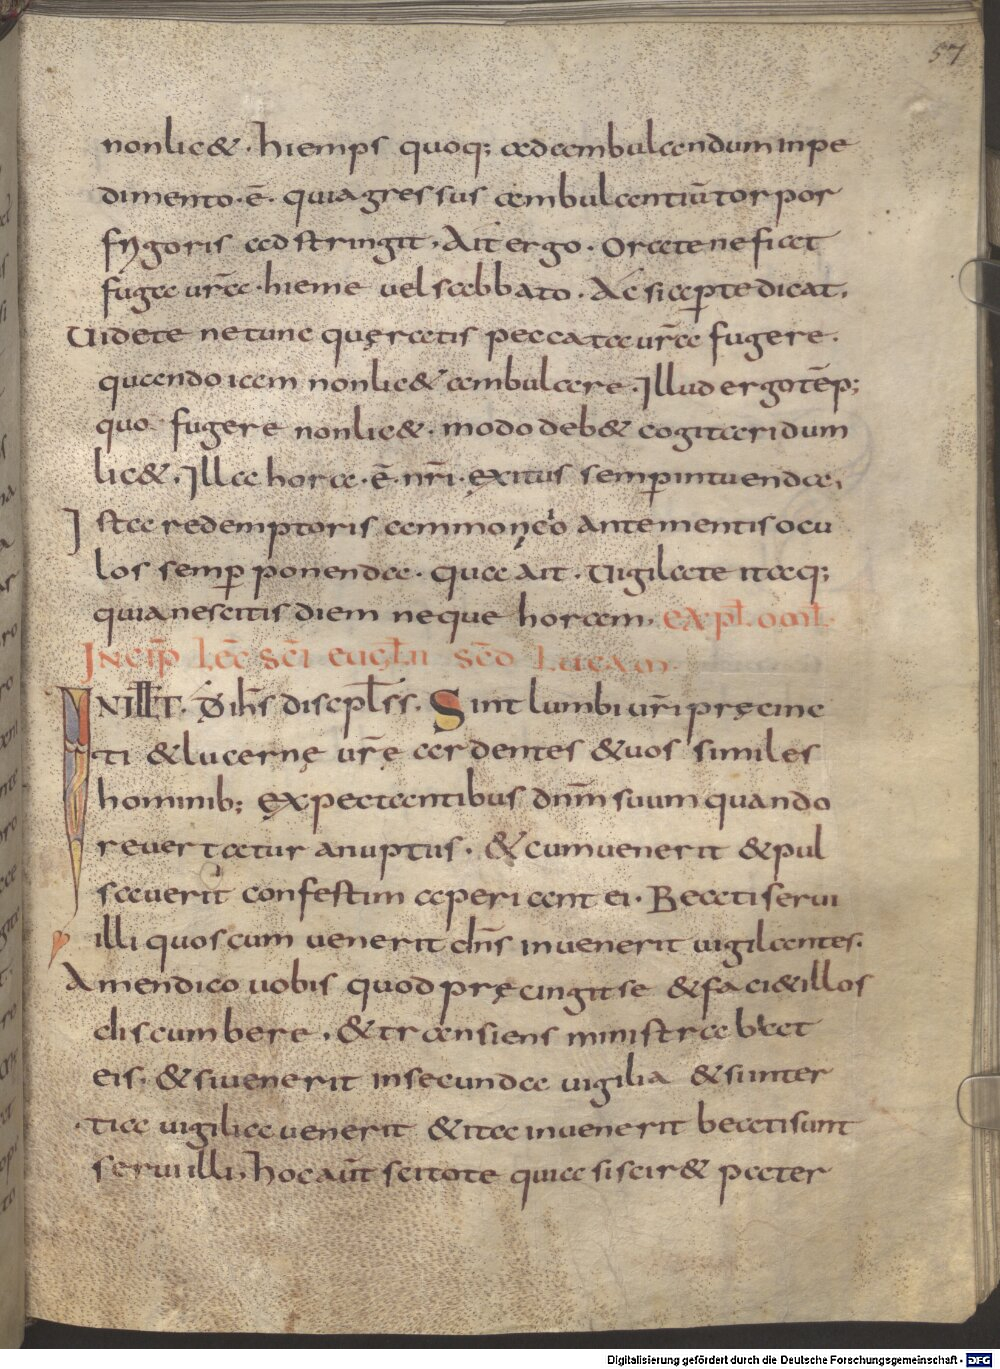 57
nonlic&. hiemps quoq; adambulandum inpe
dimento. ē. quia gressus ambulantiū torpor
frigoris adstringit. Ait ergo. Orate ne fiat
fuga ur̄a. hieme uel sabbato. Ac si aperte dicat.
Uidete ne tunc quęratis peccata ur̄a fugere.
quando iam nonlic& ambulare. Illud ergo tēp;
quo fugere nonlic&. modo deb& cogitari dum
lic&. Illa hora. ē. nr̄i. exitus semp intuenda,
Ista redemptoris ammonęo ante mentis ocu
los semp ponenda. quae ait. Uigilate itaq;
quia nescitis diem neque horam. expł omł.
Incip̄ łec sc̄i eugłii sc̄d Lucam.
IN ILLT. D̄ ih̄s discipłss. Sint lumbi ur̄i pręcinc
ti & lucernę ur̄ę ardentes & uos similes
hominib; expectantibus dnm̄ suum quando
reuertatur a nuptus. & cum uenerit & pul
sauerit confestim aperiant ei. Beati serui
illi quos cum uenerit dn̄s inuenerit uigilantes.
Amen dico uobis quod pręcingit se & faci& illos
discumbere. & transiens ministrabat
eis. & si uenerit in secunda uigilia & si in ter
tia uigilia uenerit & ita inuenerit beati sunt
serui illi, hoc aūt scitote quia si scir& pater
Digitalisierung gefördert durch die Deutsche Forschungsgemeinschaft - DFG